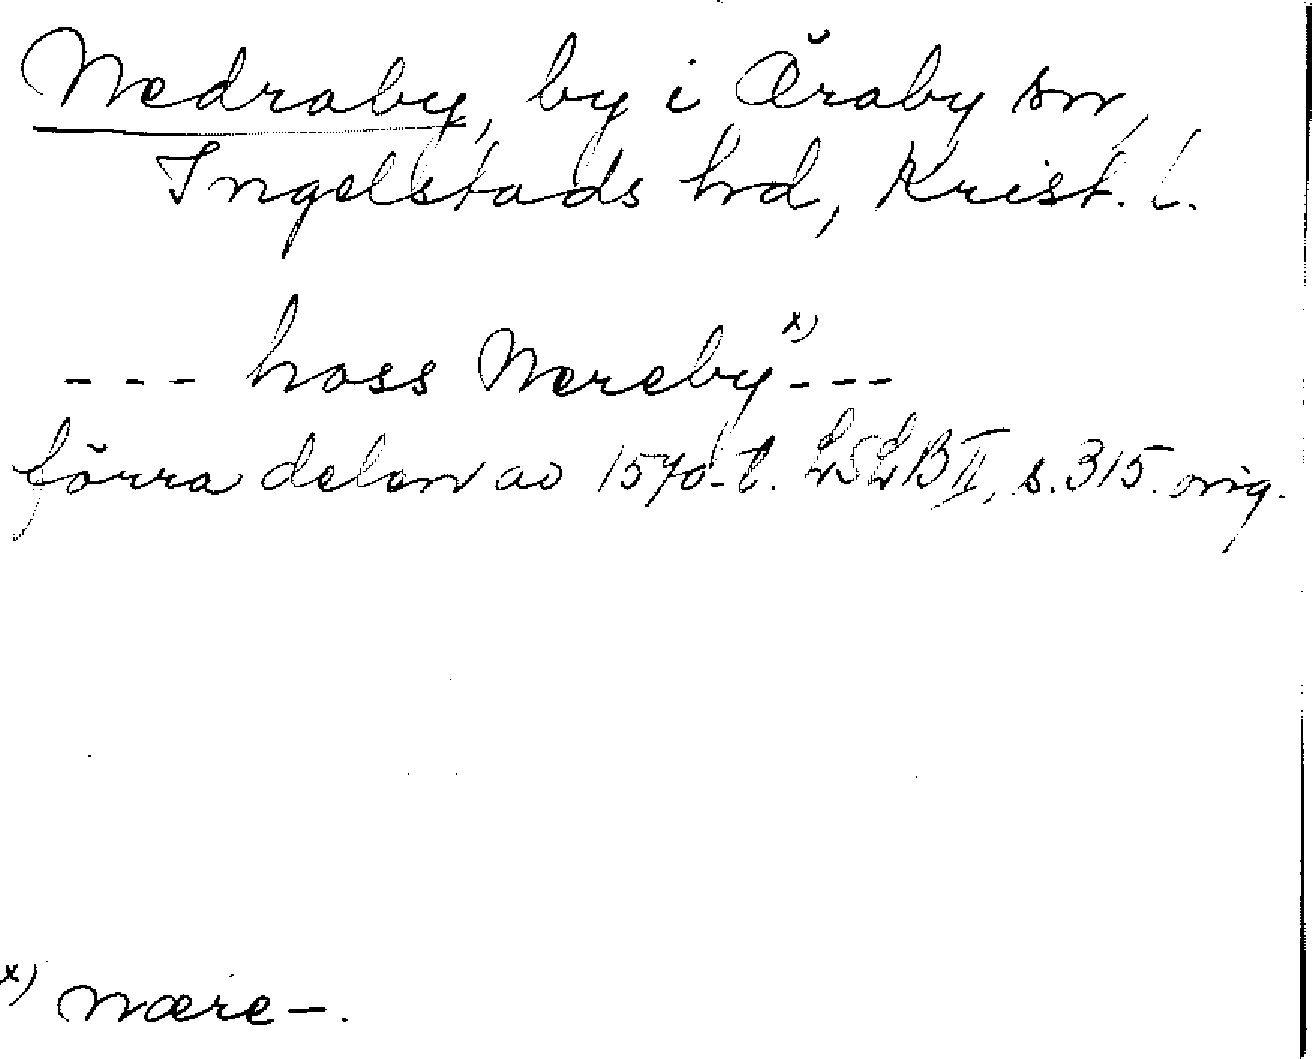 Nedraby, by i Öraby sn,
Ingelstads hd, Krist. l.
--- hoss Nereby x) ---
förra delen av 1570-t. LSLB II, s. 315. orig.
x) nære-.